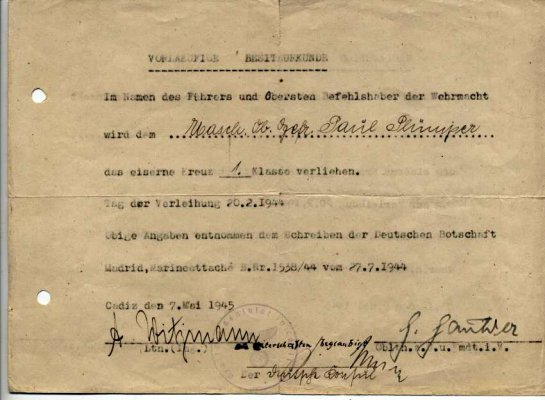 VORLAEUFIGE BESITZURKUNDE
Im Namen des Führers und Obersten Befehlshaber der Wehrmacht
wird dem Masch. Ob. Gefr. Paul Plümper
das eiserne Kreuz 1. Klasse verliehen.
Tag der Verleihung 20.2.1944
Obige Angaben entnommen dem Schreiben der Deutschen Botschaft
Madrid, Marineattaché B.Nr. 1538/44 vom 27.7.1944
Cadiz den 7. Mai 1945
Witzmann
Ltn. (Ing.)
Unterschriften beglaubigt
Obltn.z.S.u.Kmdt.i.V.
Der Deutsche Consul